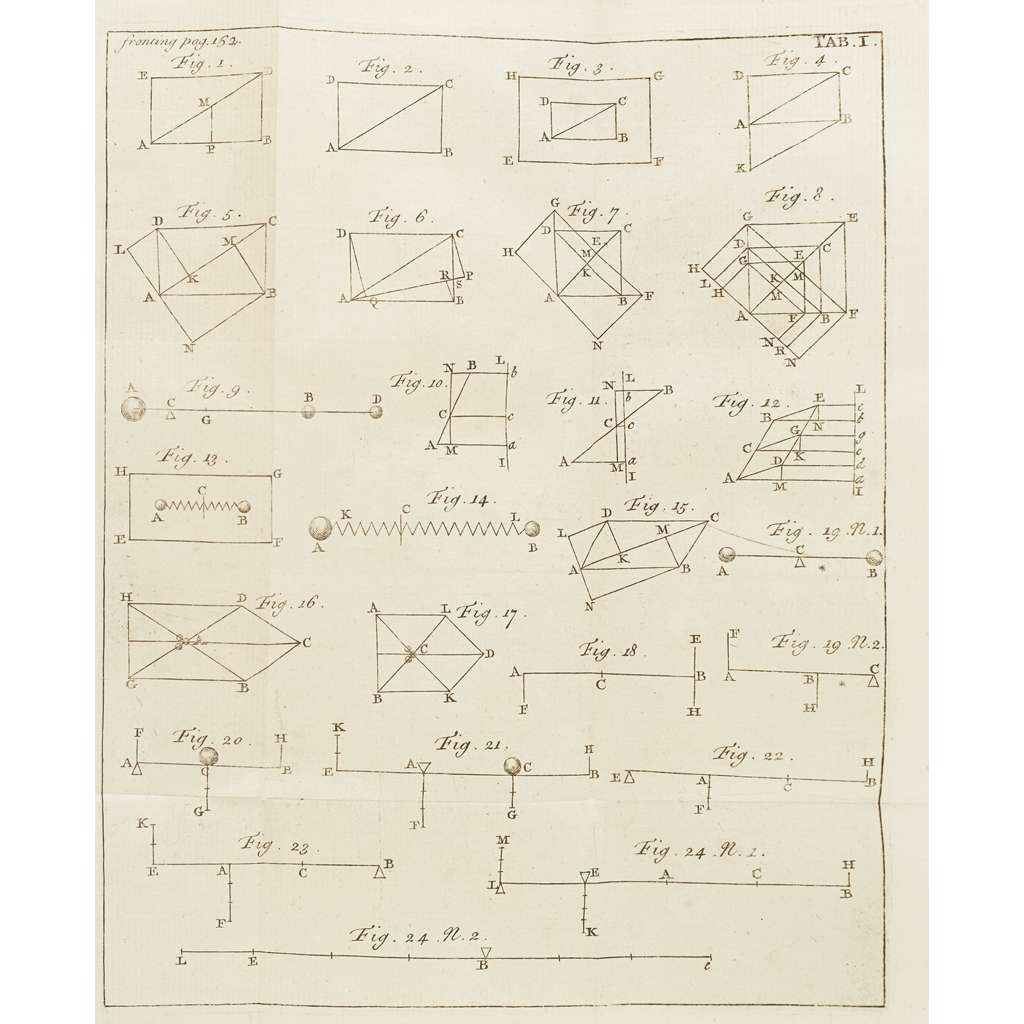 fronting pag. 152.
TAB. I.
Fig. 1.
E D M A P B
Fig. 2.
D C A B
Fig. 3.
H G D C A B E F
Fig. 4.
D C A B K
Fig. 5.
D C L M K A B N
Fig. 6.
D C R P S A Q B
Fig. 7.
G D C E H M K A B F N
Fig. 8.
G E D C G E H K M L H M A F B F N R N
Fig. 9.
A C G B D
Fig. 10.
N B L b C c A M a I
Fig. 11.
N L B b C c A M a I
Fig. 12.
L E c B N b G g C K c D d A M a I
Fig. 13.
H G C A B E F
Fig. 14.
K C L A B
Fig. 15.
D C L M K A B N
Fig. 19 N. 1.
C A B
Fig. 16.
H D C G B
Fig. 17.
A L C D B K
Fig. 18.
E A C B F H
Fig. 19 N. 2.
F A B C H
Fig. 20.
F H A C B G
Fig. 21.
K H E A C B F G
Fig. 22.
H E A C B F
Fig. 23.
K B E A C F
Fig. 24 N. 1.
M H L E A C B K
Fig. 24 N. 2.
L E B